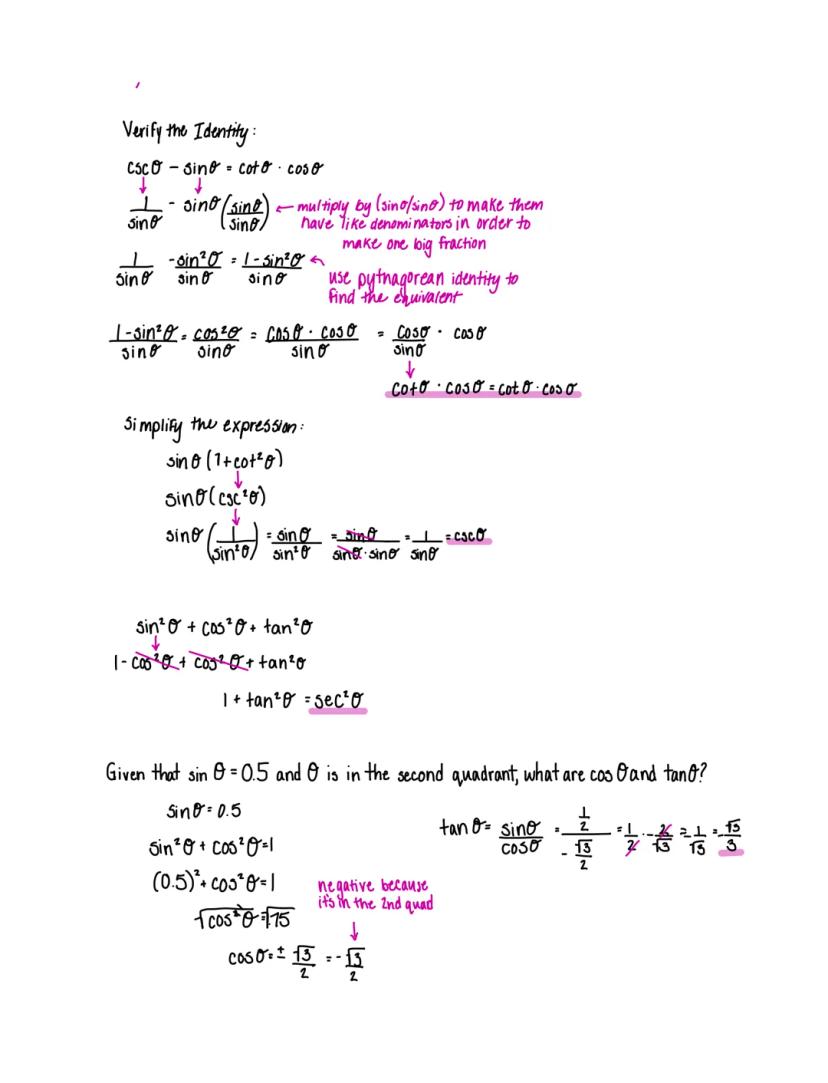 Verify the Identity:
cscθ - sinθ = cotθ · cosθ
1/sinθ - sinθ(sinθ/sinθ) ← multiply by (sinθ/sinθ) to make them
have like denominators in order to
make one big fraction
1/sinθ - sin²θ/sinθ = 1-sin²θ/sinθ
use pythagorean identity to
find the equivalent
1-sin²θ/sinθ = cos²θ/sinθ = cosθ · cosθ/sinθ = cosθ/sinθ · cosθ
cotθ · cosθ = cotθ · cosθ
Simplify the expression:
sinθ(1+cot²θ)
sinθ(csc²θ)
sinθ(1/sin²θ) = sinθ/sin²θ = sinθ/sinθ·sinθ = 1/sinθ = cscθ
sin²θ + cos²θ + tan²θ
1 - cos²θ + cos²θ + tan²θ
1 + tan²θ = sec²θ
Given that sin θ = 0.5 and θ is in the second quadrant, what are cos θ and tanθ?
sinθ = 0.5
sin²θ + cos²θ = 1
(0.5)² + cos²θ = 1
√cos²θ = √.75
cosθ = ± √3/2 = - √3/2
negative because
it's in the 2nd quad
tanθ = sinθ/cosθ = 1/2/-√3/2 = 1/2 · -2/√3 = 1/√3 = √3/3